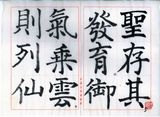 聖存其
發育御
氣乘雲
則列仙